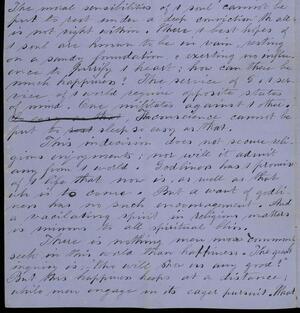 The moral sensibilities of t soul cannot be
put to rest under a deep conviction th all
is not right within. Where t best hopes of
t soul are known to be in vain, resting
on a sandy foundation, & exerting no influ
ence to purify t heart; how can there be
much happiness? The service of G & t ser
vice of t world require opposite states
of mind. One militates against t other.
Conscience cannot be
put to sleep so easy as that.
This indecision does not secure reli
gious enjoyments; nor will it admit
any from t world. Godliness has t promise
of t life that now is as well as that
wh is to come. But a want of godli
ness has no such encouragement. And
a vacilating spirit in religious matters
is ruinous to all spiritual
There is nothing men more commonly
seek in this world than happiness. The great
inquiry is; Who will shew us any good?
But this happiness keeps at a distance;
while men engage in its eager pursuit. What